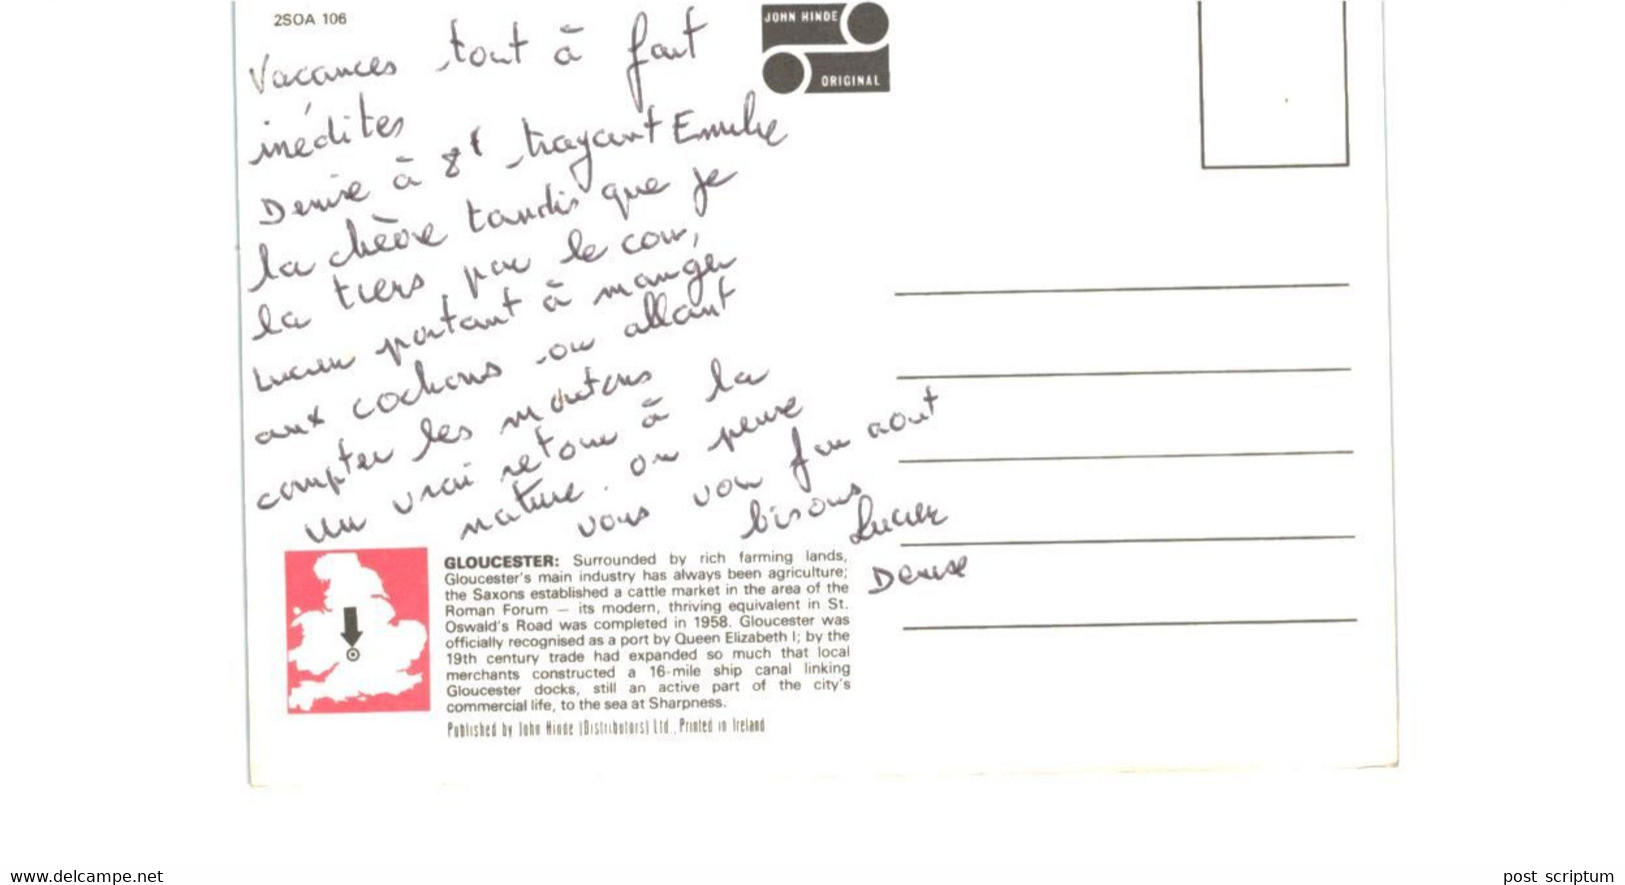 2SOA 106
JOHN HINDE
ORIGINAL
Vacances tout à fait
inédites
Denise à 8h trayant Emilie
la chèvre tandis que je
la tiers par le cou,
Lucien portant à manger
aux cochons ou allant
compter les moutons
un vrai retour à la
nature. on pense
vous voir fin aout
bisous
Lucien
Denise
GLOUCESTER: Surrounded by rich farming lands,
Gloucester's main industry has always been agriculture;
the Saxons established a cattle market in the area of the
Roman Forum — its modern, thriving equivalent in St.
Oswald's Road was completed in 1958. Gloucester was
officially recognised as a port by Queen Elizabeth I; by the
19th century trade had expanded so much that local
merchants constructed a 16-mile ship canal linking
Gloucester docks, still an active part of the city's
commercial life, to the sea at Sharpness.
Published by John Hinde (Distributors) Ltd., Printed in Ireland
www.delcampe.net
post scriptum